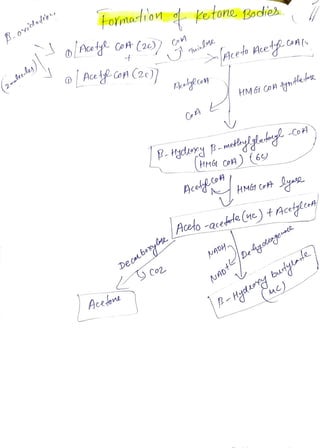 Formation of Ketone Bodies
β-oxidation
(2 molecules)
① [Acetyl CoA (2C)]
+
① [Acetyl CoA (2C)]
CoA
Aceto Acetyl CoA
Acetyl CoA
CoA
HMG CoA synthetase
β-Hydroxy β-methylglutaryl-CoA
(HMG CoA) (6C)
Acetyl CoA
HMG CoA lyase
Aceto-acetate (4C) + Acetyl CoA
Decarboxylase
CO2
NADH
NAD+
Dehydrogenase
Acetone
β-Hydroxy butyrate
(4C)